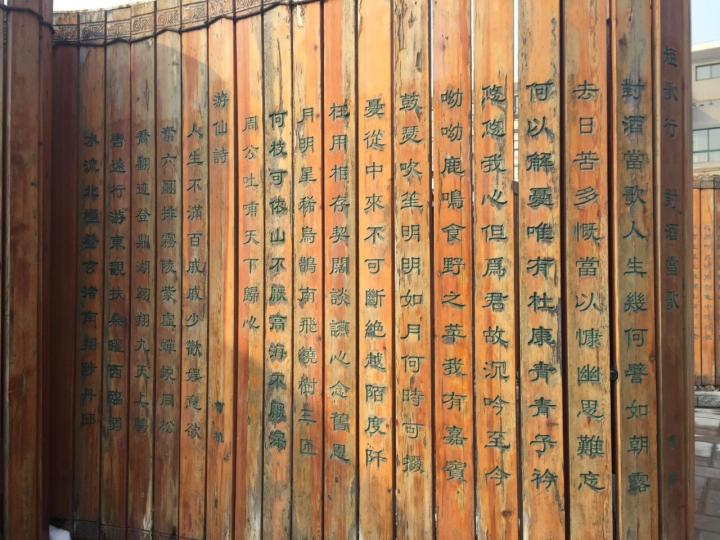 短歌行 對酒當歌
對酒當歌人生幾何譬如朝露
去日苦多慨當以慷幽思難忘
何以解憂唯有杜康青青子衿
悠悠我心但爲君故沉吟至今
呦呦鹿鳴食野之苹我有嘉賓
鼓瑟吹笙明明如月何時可掇
憂從中來不可斷絕越陌度阡
枉用相存契闊談讌心念舊恩
月明星稀烏鵲南飛繞樹三匝
何枝可依山不厭高海不厭深
周公吐哺天下歸心
游仙詩 曹植
人生不滿百戚戚少歡娛意欲
奮六翮排霧陵紫虛蟬蛻同松
喬翻迹登鼎湖翱翔九天上騁
轡遠行游東觀扶桑曜西臨弱
水流北極登玄渚南翔陟丹邱